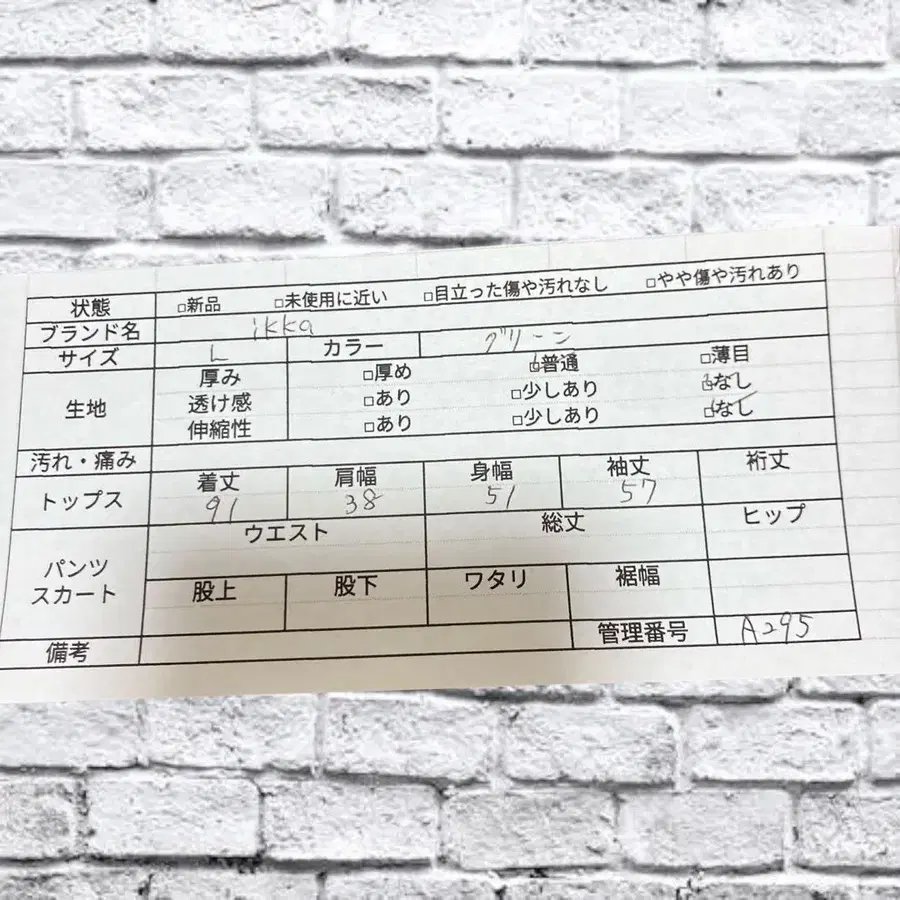 状態 □新品 □未使用に近い □目立った傷や汚れなし □やや傷や汚れあり
ブランド名 ikka
サイズ L カラー グリーン
生地 厚み □厚め □普通 □薄目
透け感 □あり □少しあり □なし
伸縮性 □あり □少しあり □なし
汚れ・痛み
トップス 着丈 肩幅 身幅 袖丈 裄丈
91 38 51 57
パンツ スカート ウエスト 総丈 ヒップ
股上 股下 ワタリ 裾幅
備考 管理番号 A295